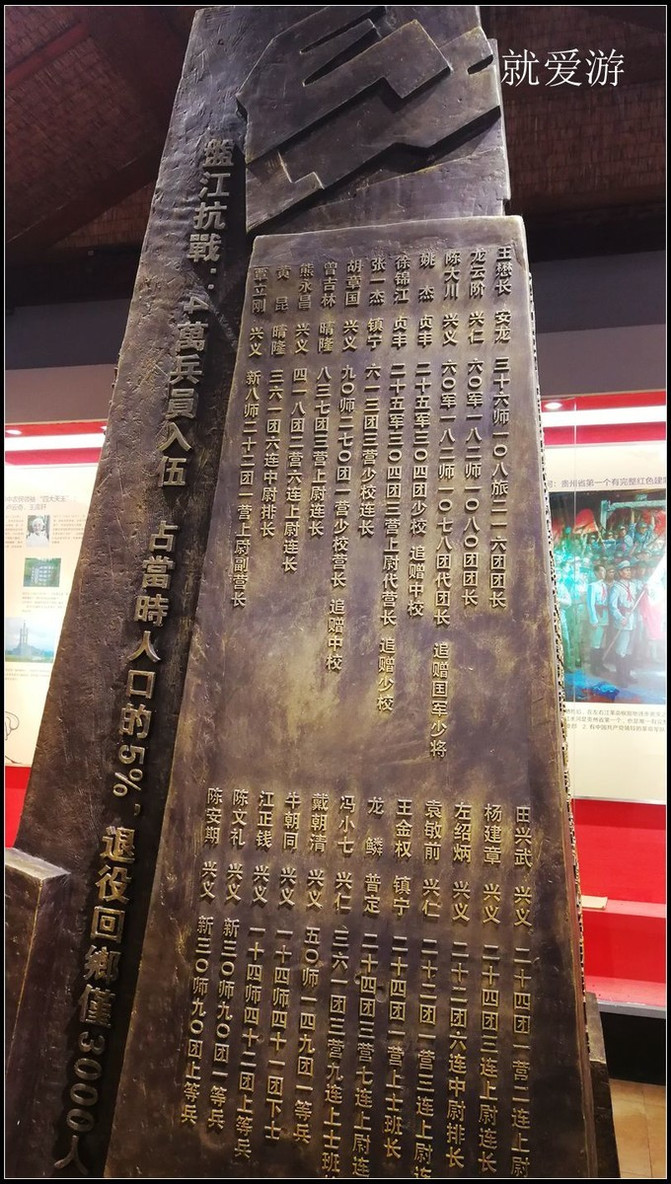 就爱游
盤江抗戰：4萬兵員入伍 占當時人口的5%，退役回鄉僅3000人
王懋长 安龙 三十六师一〇八旅二一六团团长
龙云阶 兴仁 六〇军一八二师一〇八〇团团长
陈大川 兴义 六〇军一八二师一〇七八团代团长 追赠国军少将
姚 杰 贞丰 二十五军三〇四团少校 追赠中校
徐锦江 贞丰 二十五军三〇四团三营上尉代营长 追赠少校
张一杰 镇宁 六一三团三营少校连长
胡章国 兴义 九〇师二七〇团一营少校营长 追赠中校
曾吉林 晴隆 八三七团三营上尉连长
熊永昌 兴义 四一八团二营六连上尉连长
黄 昆 晴隆 三六一团六连中尉排长
立刚 兴义 新八师二十二团一营上尉副营长
田兴武 兴义 二十四团一营二连上尉
杨建章 兴义 二十四团三连上尉连长
左绍炳 兴义 二十二团六连中尉排长
袁敏前 兴仁 二十二团一营三连上尉连
王金权 镇宁 二十四团一营上士班长
龙 鳞 普定 二十四团三营七连上尉连
冯小七 兴仁 三六一团三营九连上士班
戴朝清 兴义 五〇师一四九团一等兵
牛朝同 兴义 一十四师四十一团下士
江正钱 兴义 一十四师四十二团上等兵
陈文礼 兴义 新三〇师九〇团一等兵
陈安期 兴义 新三〇师九〇团上等兵
贵州省第一个有完整红色建